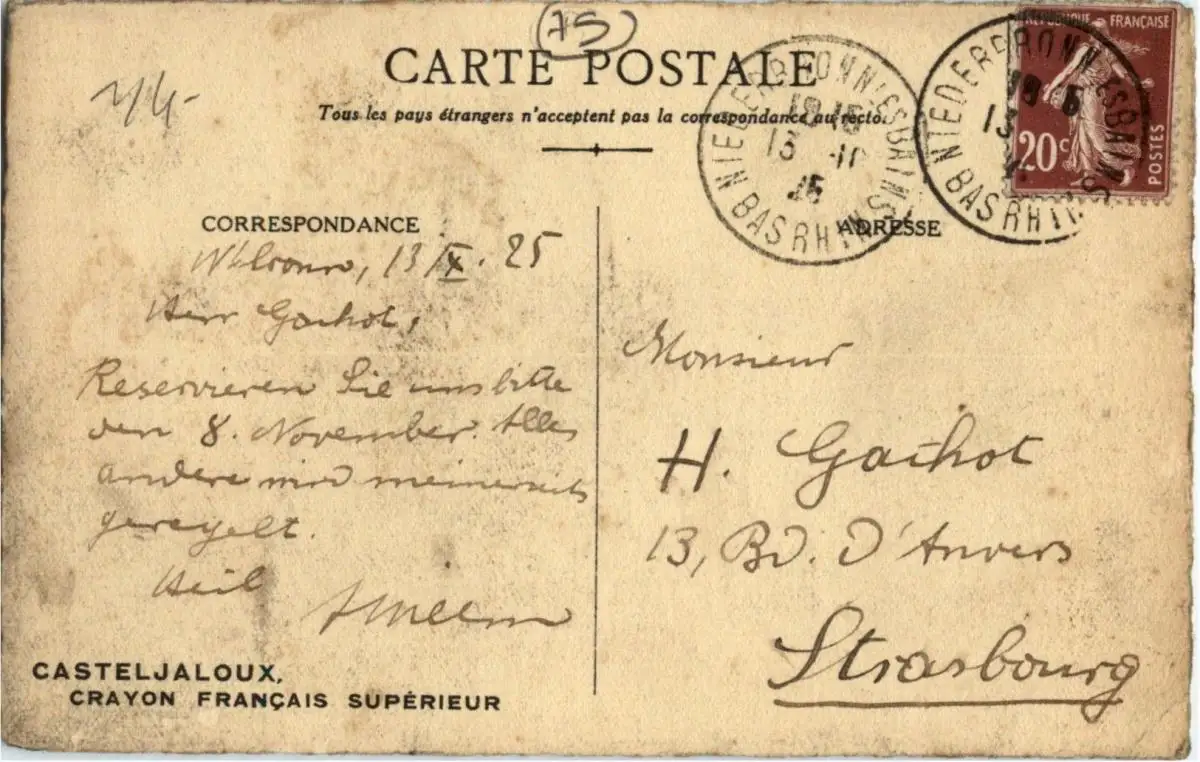 75
CARTE POSTALE
Tous les pays étrangers n'acceptent pas la correspondance au recto.
RÉPUBLIQUE FRANÇAISE
20c
POSTES
NIEDERBRONN LES BAINS
18 15
13 - 10
25
BAS RHIN
NIEDERBRONN LES BAINS
18 15
13
BAS RHIN
CORRESPONDANCE
N'bronn, 13/X. 25
Herr Gachot,
Reservieren Sie uns bitte
den 8. November. Alles
andere wird meinerseits
geregelt.
Heil
CASTELJALOUX,
CRAYON FRANÇAIS SUPÉRIEUR
ADRESSE
Monsieur
H. Gachot
13, Bd. d'Anvers
Strasbourg